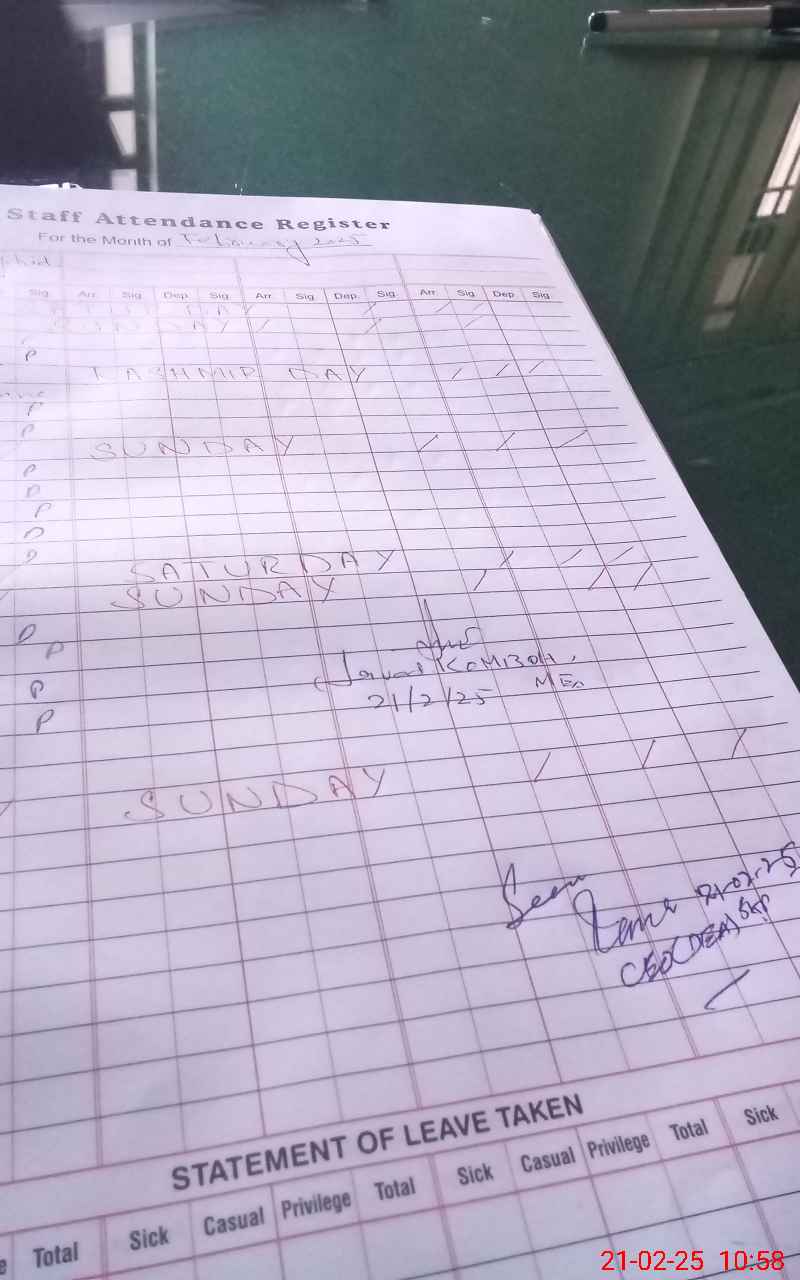 Staff Attendance Register
For the Month of February 2025
Sig. Arr. Sig. Dep. Sig. Arr. Sig. Dep. Sig. Arr. Sig. Dep. Sig.
SUNDAY
P
KASHMIR DAY
P
P
SUNDAY
P
P
P
P
P
SATURDAY
SUNDAY
P
P
P
P
21/2/25
SUNDAY
Seen
21-02-25
CEO (DEA) SKP
STATEMENT OF LEAVE TAKEN
Total Sick Casual Privilege Total Sick Casual Privilege Total Sick
21-02-25 10:58